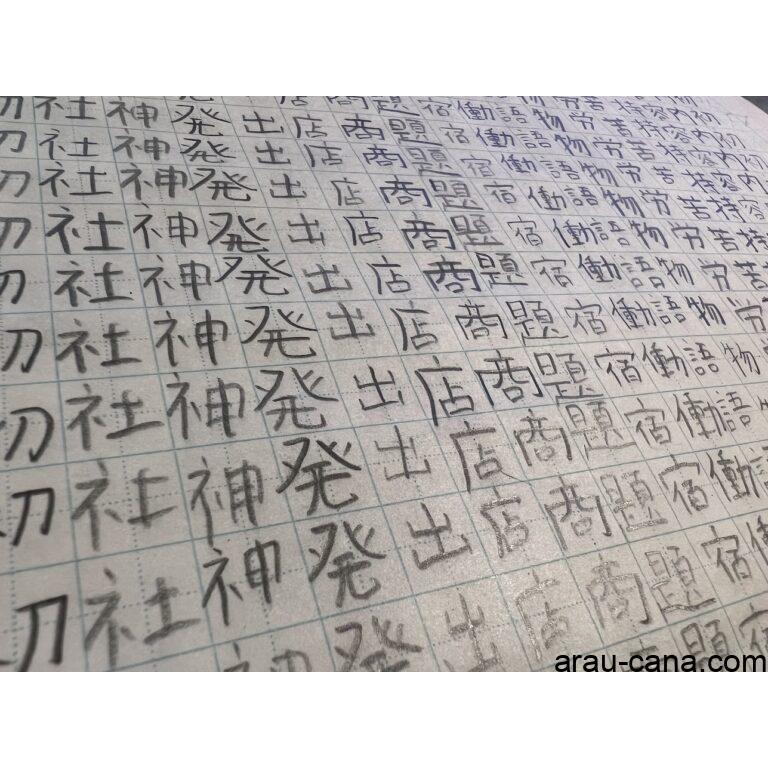 切社神発出店商題宿働語物労苦持容内初
切社神発出店商題宿働語物労苦持容内
切社神発出店商題宿働語物労苦持容
切社神発出店商題宿働語物労苦持
切社神発出店商題宿働語物労苦
切社神発出店商題宿働語物労
切社神発出店商題宿働語物
切社神発出店商題宿働語
切社神発出店商題宿働
神発出店商題宿
arau-cana.com